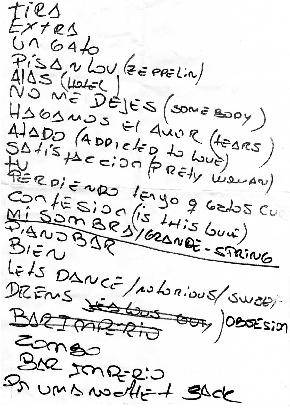 TIRA
EXTRA
UN GATO
PISAN LOU (ZEPPELIN)
ALAS (HOTEL)
NO ME DEJES (SOMEBODY)
HAGAMOS EL AMOR (TEARS)
ATADO (ADDICTED TO LOVE)
SATISFACCION (PRETY WOMAN)
TU
PERDIENDO TENGO 9 GATOS
CONFESION (IS THIS LOVE)
MI SOMBRA/GRANDE-STRING
PIANO BAR
BIEN
LETS DANCE/NOTORIOUS/SWEE
DRENS JEALOUS GUY) OBSESION
BAR IMPERIO
ZOMBO
BAR IMPERIO
UMA NOCHE +